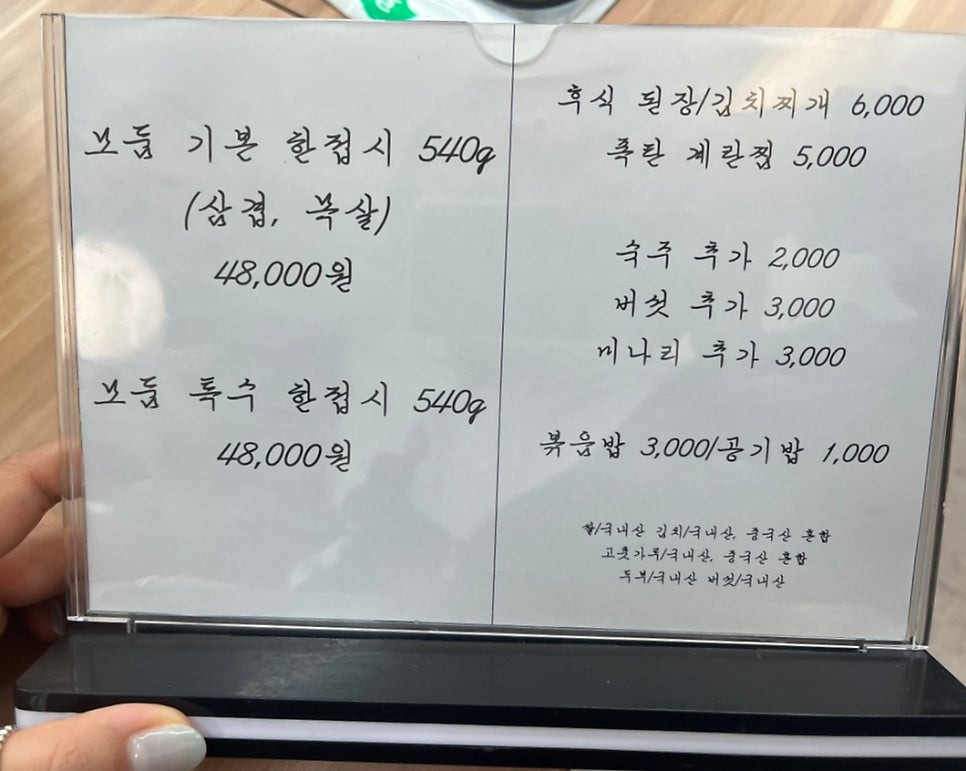 모듬 기본 한접시 540g
(삼겹, 목살)
48,000원
모듬 특수 한접시 540g
48,000원
후식 된장/김치찌개 6,000
폭탄 계란찜 5,000
숙주 추가 2,000
버섯 추가 3,000
미나리 추가 3,000
볶음밥 3,000/공기밥 1,000
쌀/국내산 김치/국내산, 중국산 혼합
고춧가루/국내산, 중국산 혼합
두부/국내산 버섯/국내산